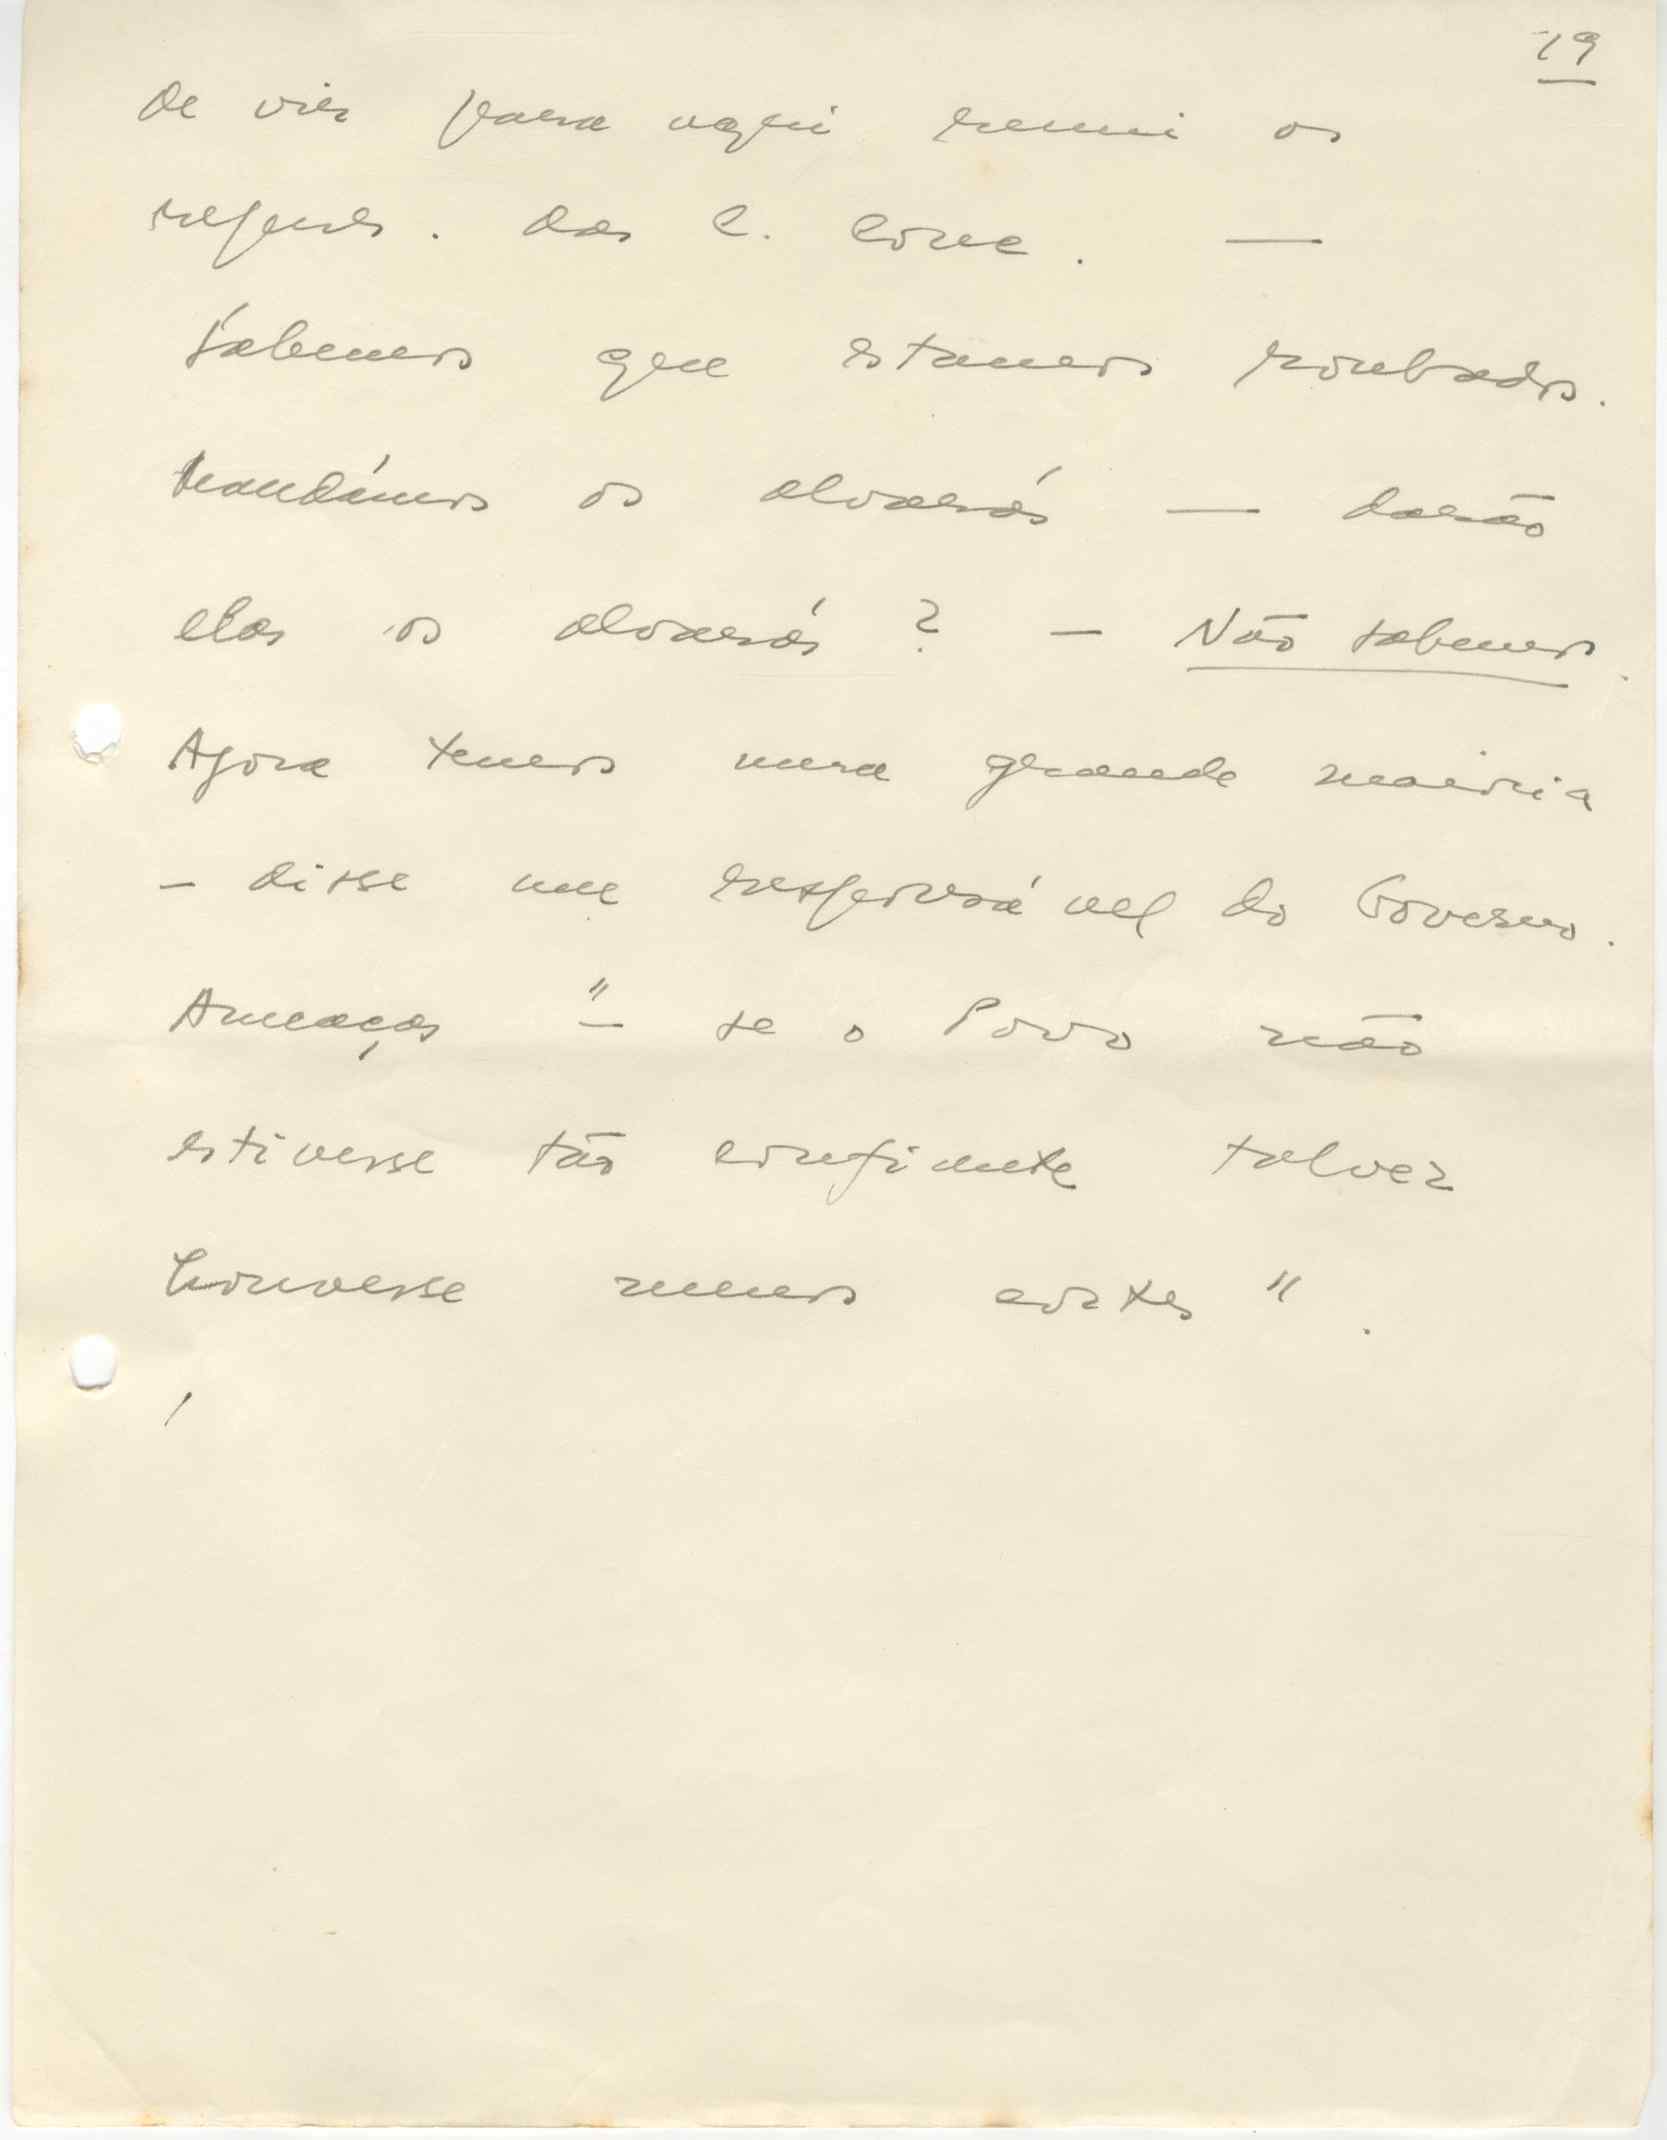 19
de vir para aqui reuni os
repres. das C. Conc. —
Sabemos que estamos roubados.
Mandámos os alvarás — darão
elas os alvarás ? — Não sabemos.
Agora temos uma grande maioria
— disse um responsável do Governo.
Ameaças "— se o Povo não
estivesse tão confiante talvez
houvesse menos cortes ".